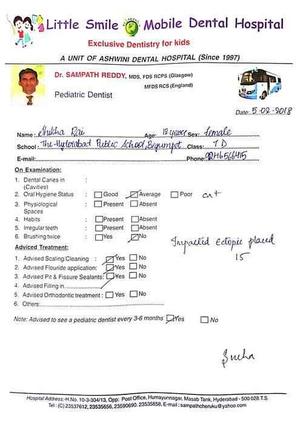 Little Smile Mobile Dental Hospital
Exclusive Dentistry for kids
A UNIT OF ASHWINI DENTAL HOSPITAL (Since 1997)
Dr. SAMPATH REDDY, MDS, FDS RCPS (Glasgow)
MFDS RCS (England)
Pediatric Dentist
Date: 5-02-2018
Name: Rai Age: 12 years Sex: female
School: The Hyderabad Public School, Begumpet Class: 7 D
E-mail: Phone:
On Examination:
1. Dental Caries in (Cavities)
2. Oral Hygiene Status : Good Average Poor
3. Physiological Spaces : Present Absent
4. Habits : Present Absent
5. Irregular teeth : Present Absent
6. Brushing twice : Yes No
Impacted ectopic placed
15
Adviced Treatment:
1. Advised Scaling/Cleaning : Yes No
2. Advised Flouride application: Yes No
3. Advised Pit & Fissure Sealants: Yes No
4. Advised Filling in
5. Advised Orthodontic treatment : Yes No
6. Others:
Note: Advised to see a pediatric dentist every 3-6 months Yes No
Hospital Address:-H.No. 10-3-304/13, Opp: Post Office, Humayunnagar, Masab Tank, Hyderabad - 500 028 T.S
Tel: (C) 23537612, 23535656, 23590690, 23535858, E-mail : sampathcheruku@yahoo.com